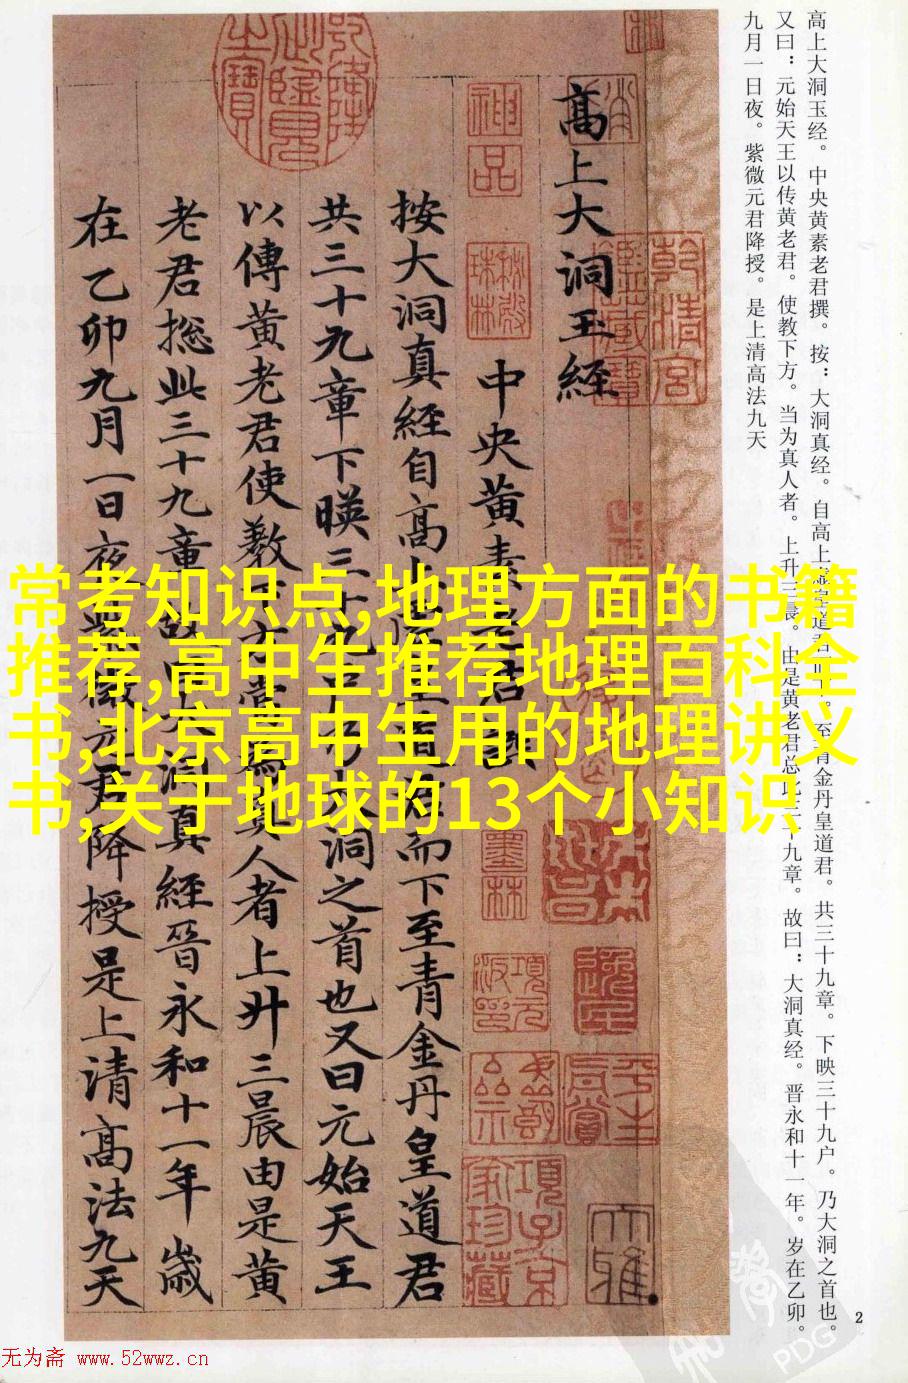 常考知识点,地理方面的书籍
推荐,高中生推荐地理百科全
书,北京高中生用的地理讲义
书,关于地球的13个小知识
高上大洞玉经。中央黄素老君撰。按：大洞真经。自高上道君。至青金丹皇道君。共三十九章。下映三十九户。乃大洞之首也。
又曰：元始天王以传黄老君。使教下方。当为真人者。上升三晨。由是黄老君总此三十九章。故曰：大洞真经。晋永和十一年。岁在乙卯。
九月一日夜。紫微元君降授。是上清高法九天
高上大洞玉經
中央黄素老君撰
按大洞真經自高上皇道君而下至青金丹皇道君
共三十九章下暎三十九户乃大洞之首也又曰元始天王
以傳黄老君使教下方當為真人者上升三晨由是黄
老君摠此三十九章故曰大洞真經晉永和十一年歲
在乙卯九月一日夜紫微元君降授是上清高法九天
乾清宮鑑藏寶
神品
墨林
平生真賞
項子京家珍藏
2
PDG
无为斋 www.52wwz.cn